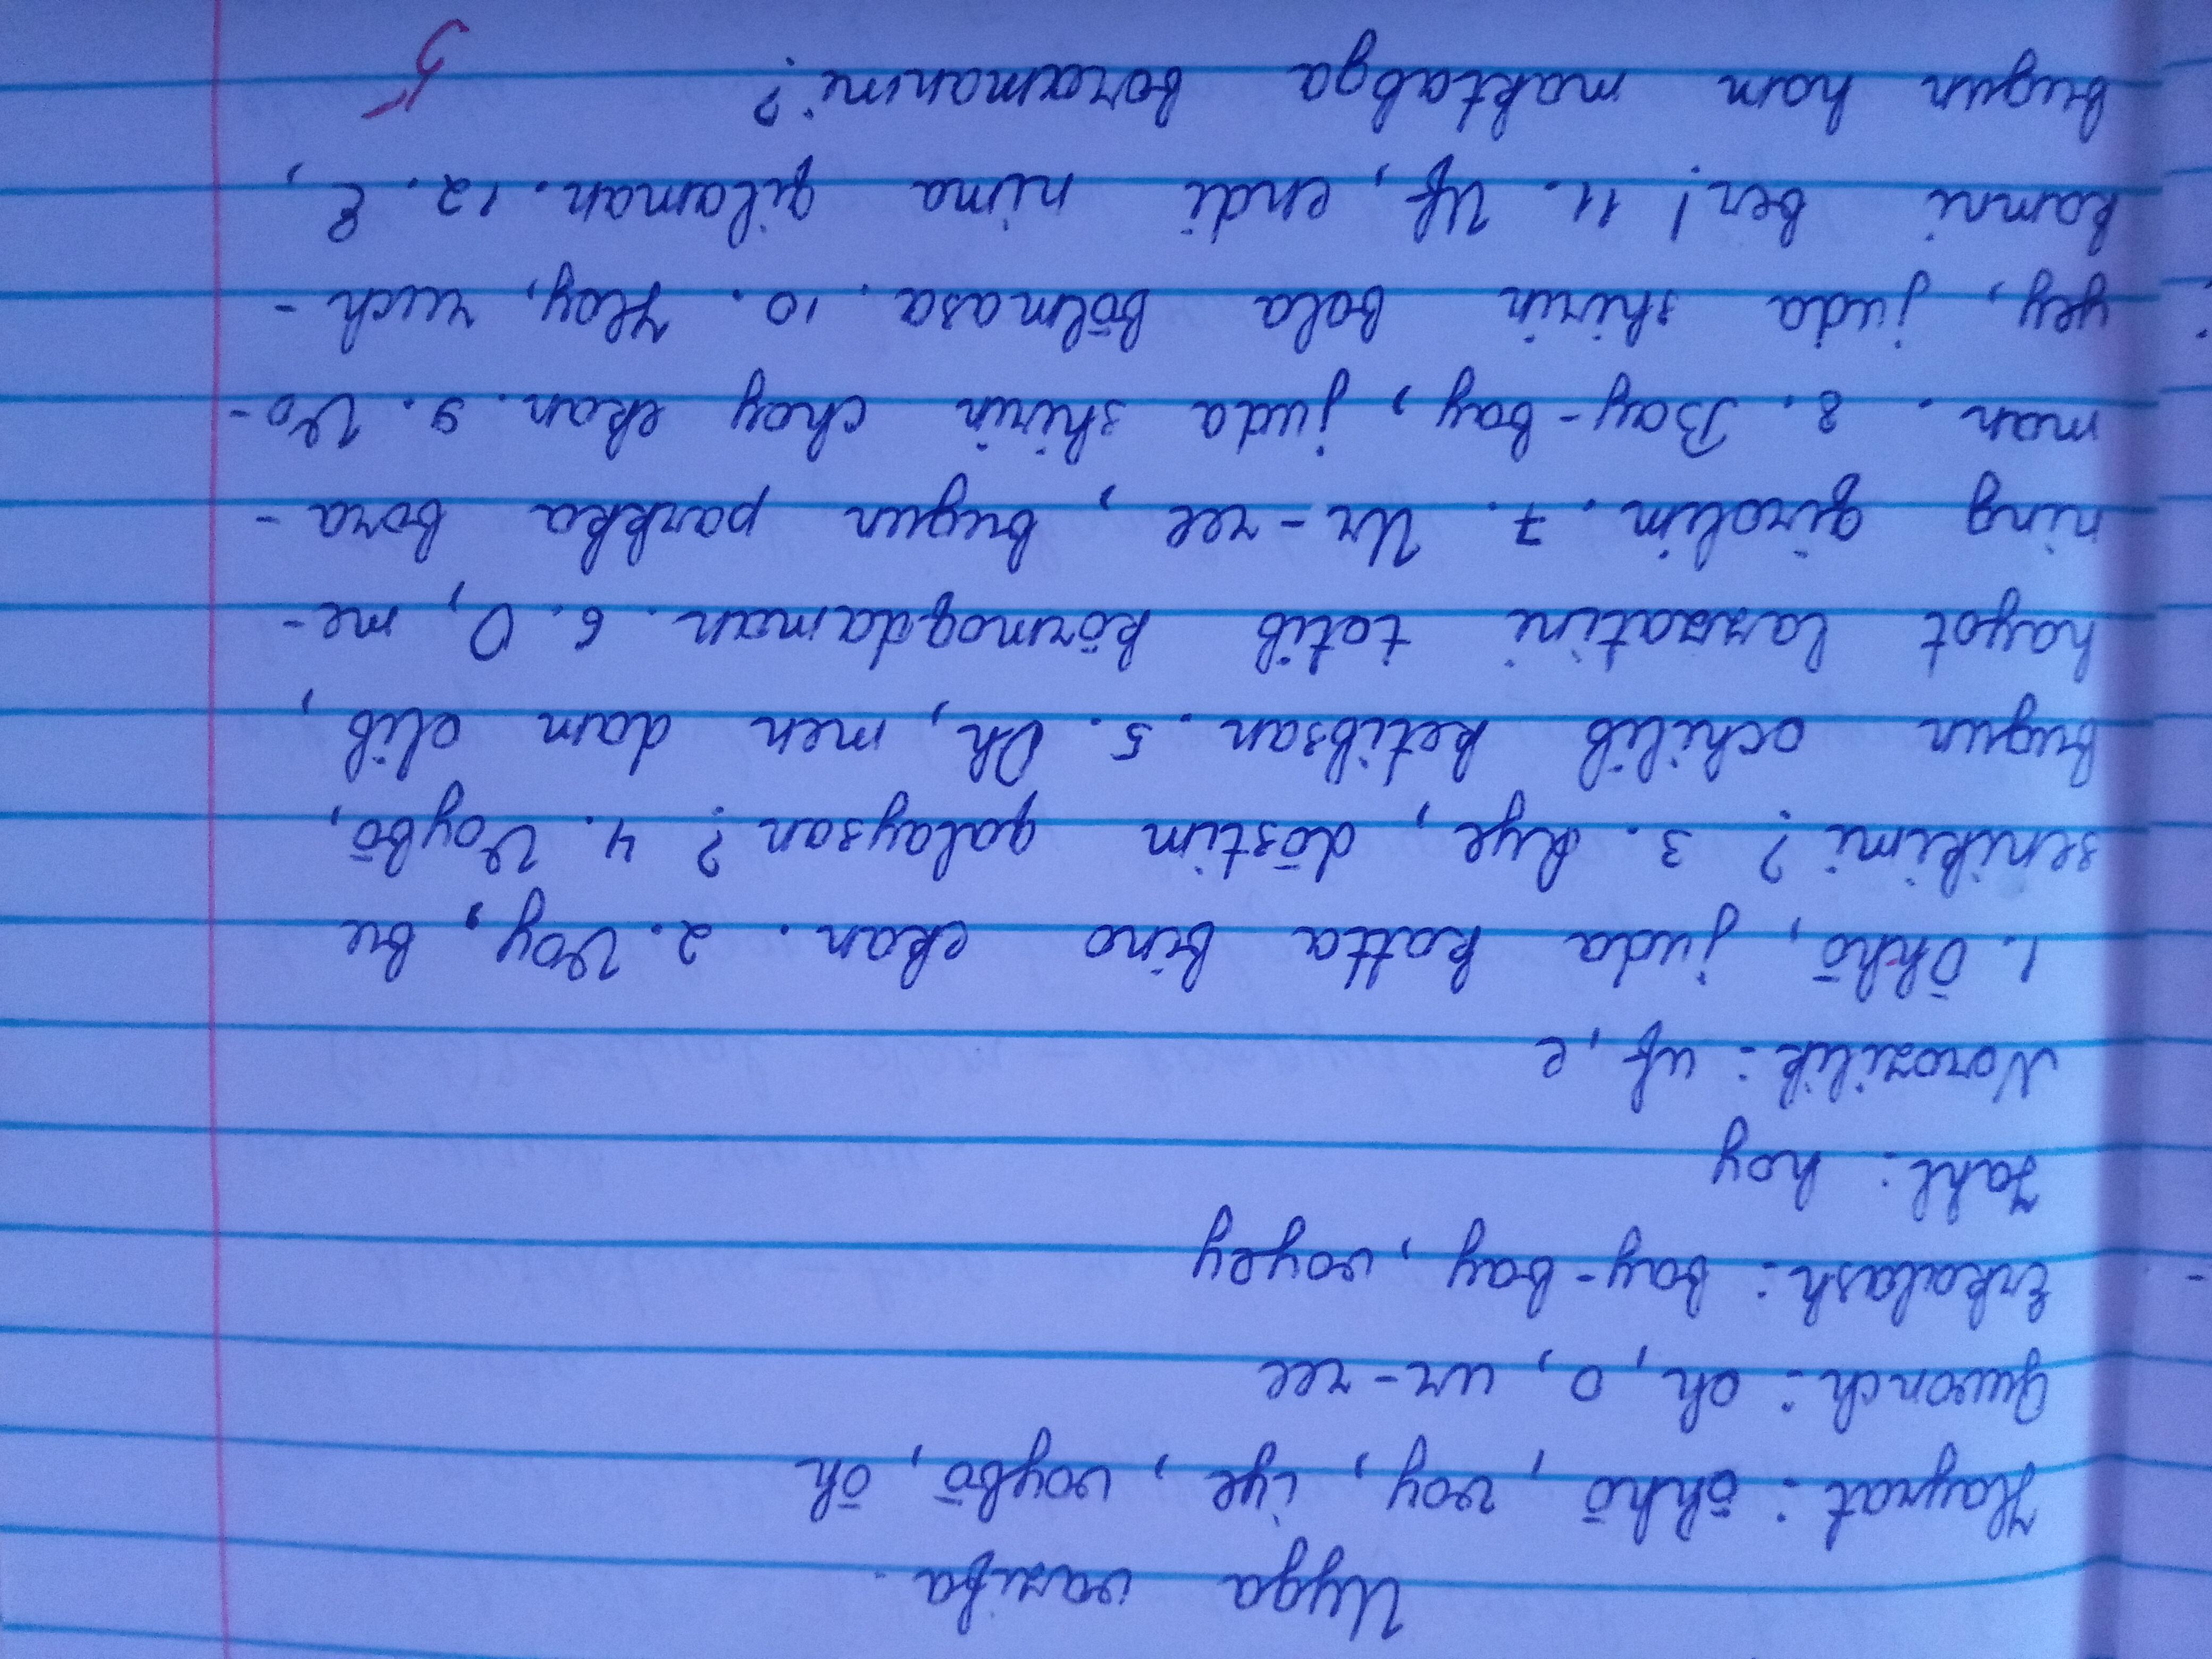 Uyga vazifa.
Hayrat: ōhhō, voy, iye, voybō, ōh
Quvonch: oh, o, ur-ree
Erkalash: bay-bay, voyey
Jahl: hoy
Norozilik: uf, e
1. Ōhhō, juda katta bino ekan. 2. Voy, bu
senikimi? 3. Iye, dōstim qalaysan? 4. Voybō,
bugun ochilib ketibsan. 5. Oh, men dam olib,
hayot lazzatini totib kōrmoqdaman. 6. O, me-
ning qirolim. 7. Ur-ree, bugun parkka bora-
man. 8. Bay-bay, juda shirin choy ekan. 9. Vo-
yey, juda shirin bola bōlmasa. 10. Hoy, ruch-
kamni ber! 11. Uf, endi nima qilaman. 12. E,
bugun ham maktabga boramanmi?
5